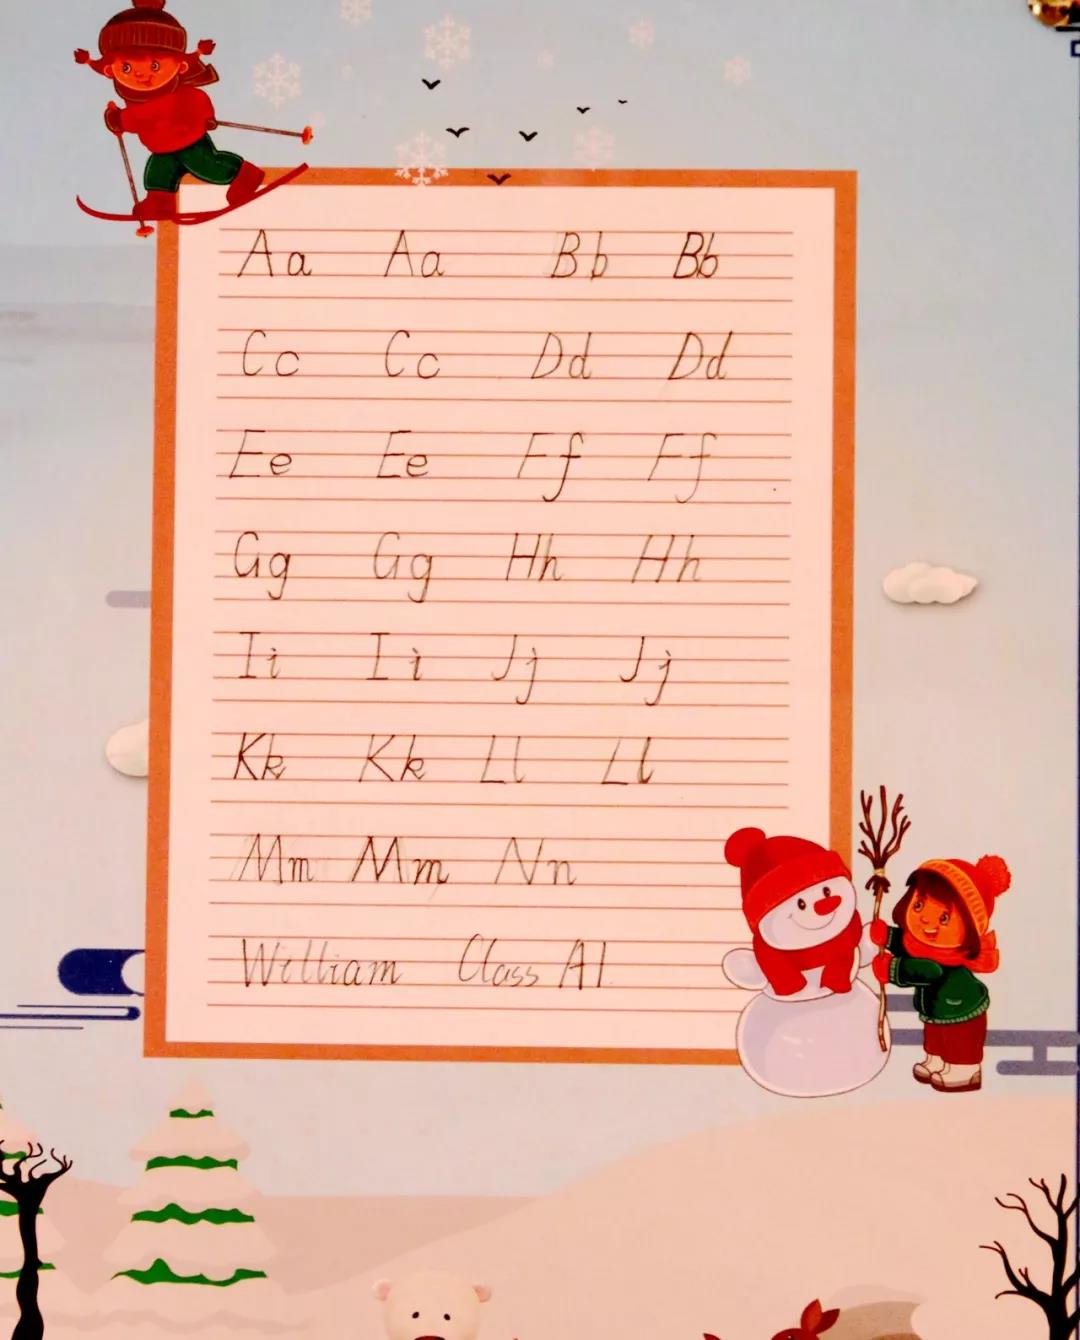 Aa Aa Bb Bb
Cc Cc Dd Dd
Ee Ee Ff Ff
Gg Gg Hh Hh
Ii Ii Jj Jj
Kk Kk Ll Ll
Mm Mm Nn
William Class A1